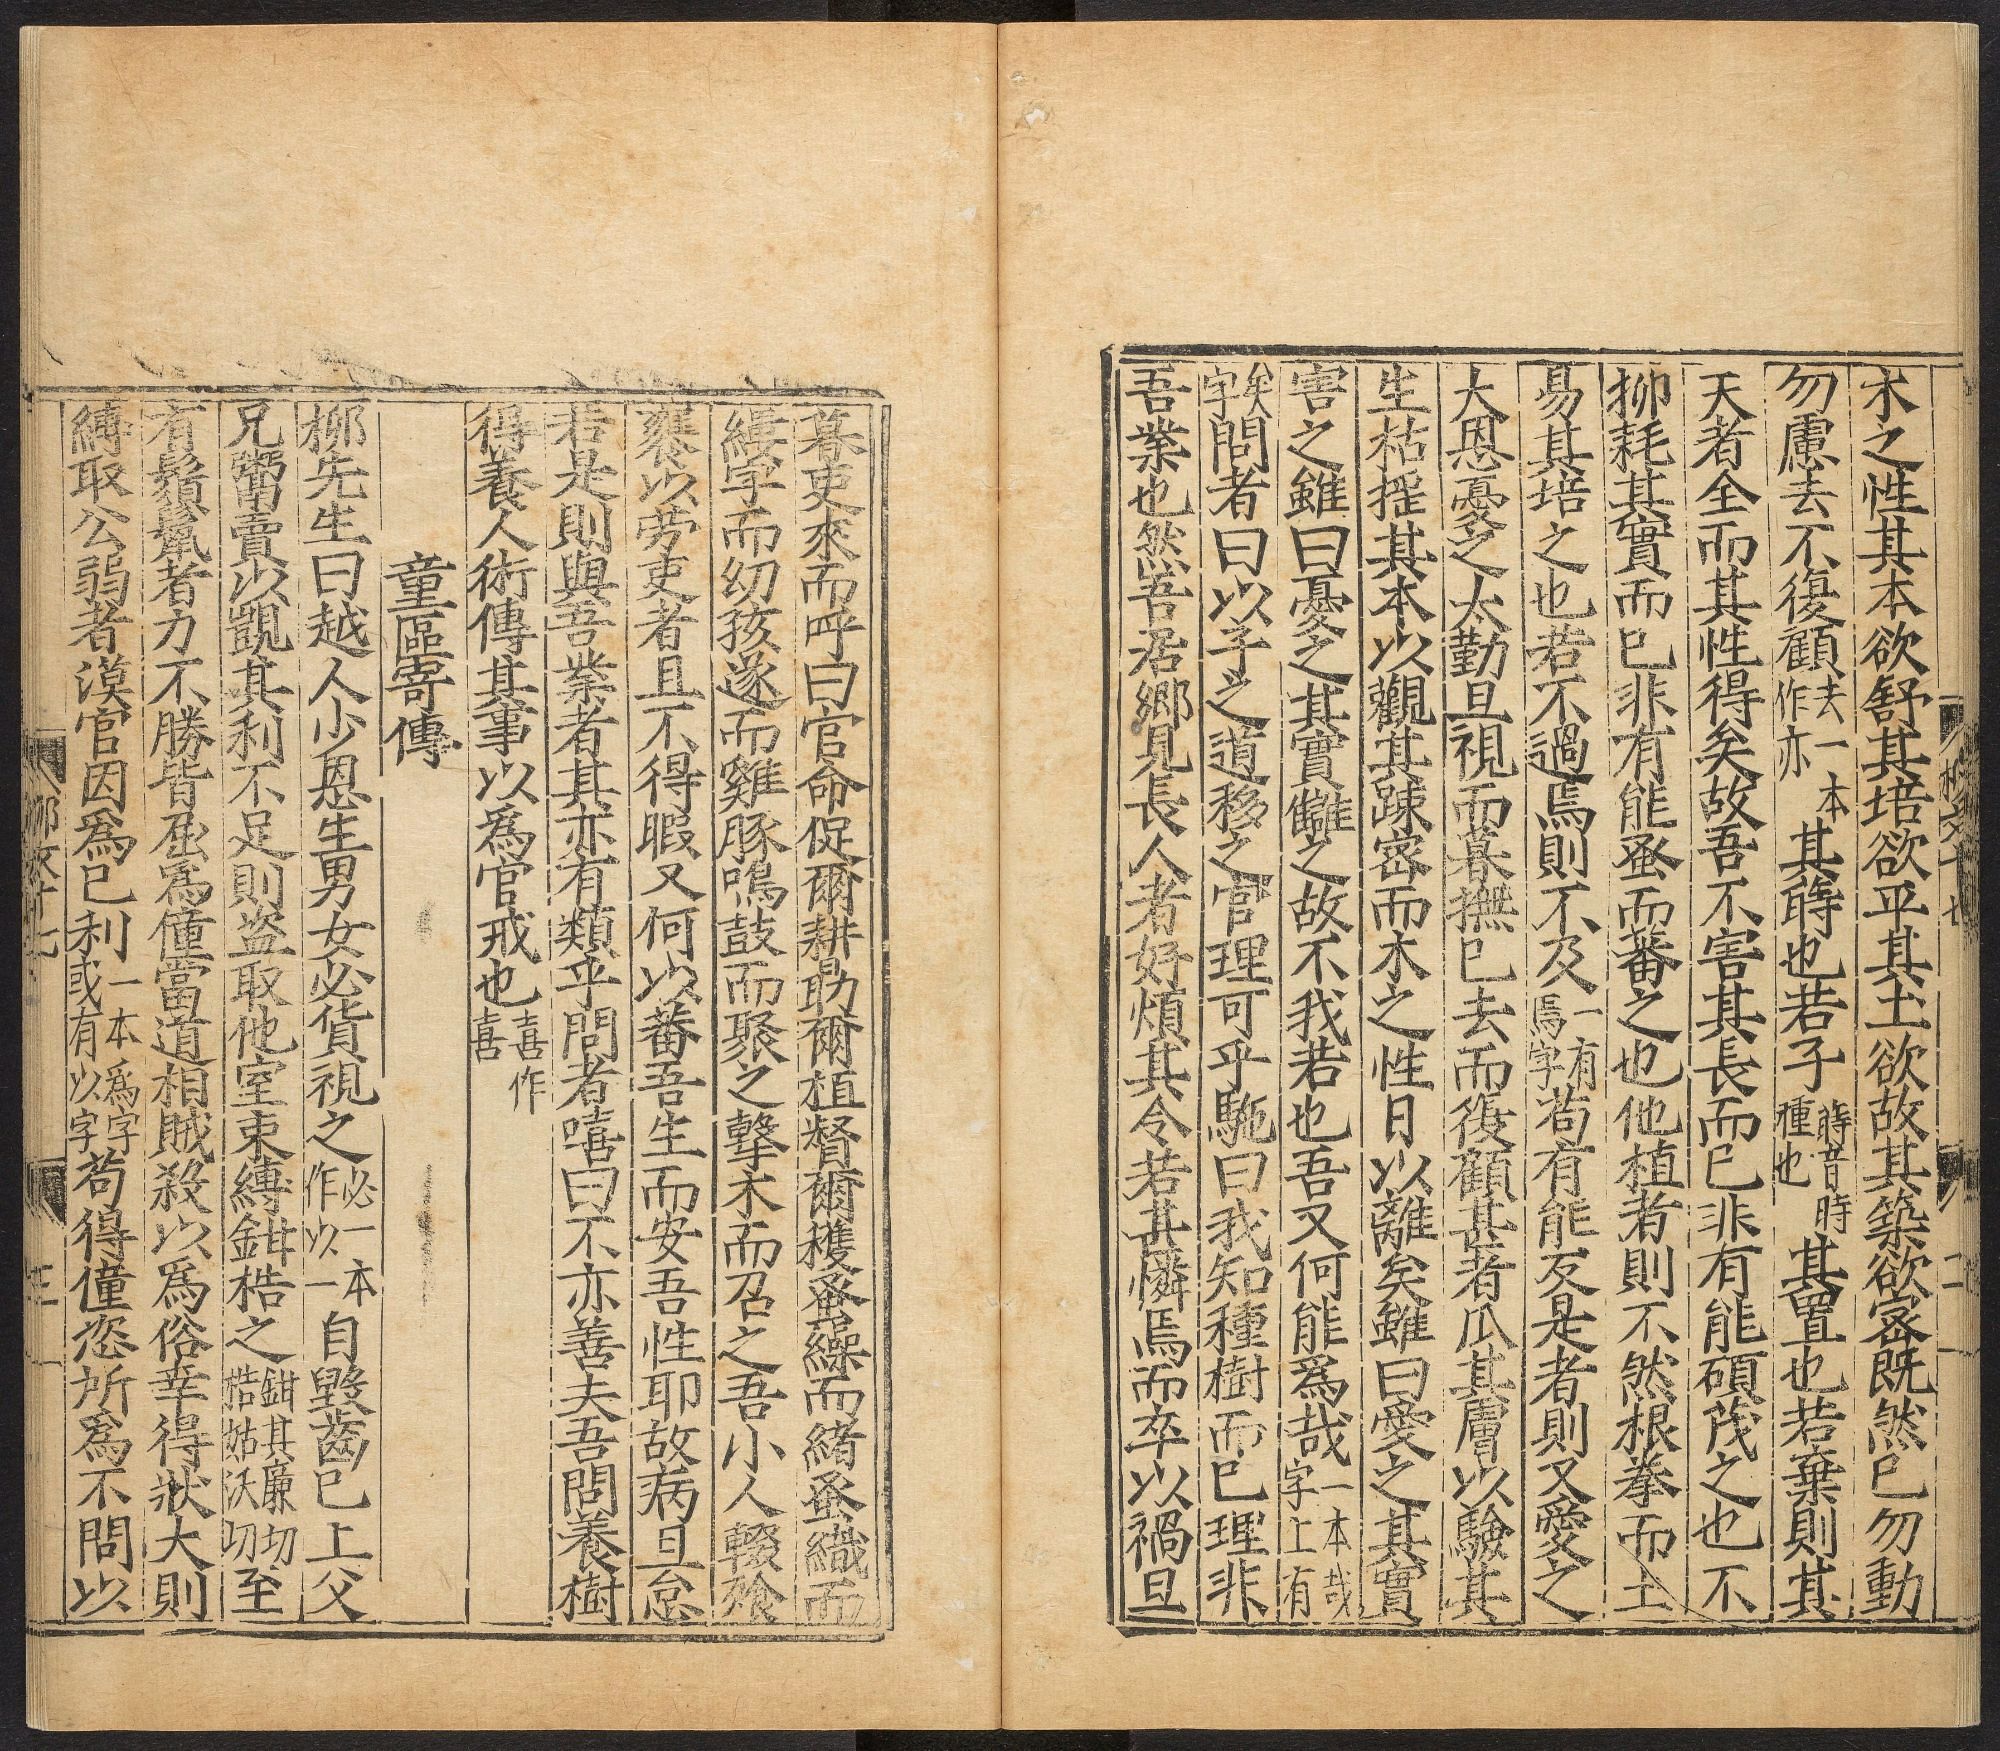 木之性其本欲舒其培欲平其土欲故其築欲密既然已勿動
勿慮去不復顧去一本作亦其蒔也若子蒔音時種也其置也若棄則其
天者全而其性得矣故吾不害其長而已非有能碩茂之也不
抑耗其實而已非有能蚤而蕃之也他植者則不然根拳而土
易其培之也若不過焉則不及一有焉字苟有能反是者則又愛之
大恩憂之太勤旦視而暮撫已去而復顧甚者爪其膚以驗其
生枯揺其本以觀其踈密而木之性日以離矣雖曰愛之其實
害之雖曰憂之其實讎之故不我若也吾又何能爲哉一本哉字上有
矣字問者曰以子之道移之官理可乎駞曰我知種樹而已理非
吾業也然吾居鄉見長人者好煩其令若甚憐焉而卒以禍旦
暮吏來而呼曰官命促爾耕勖爾植督爾穫蚤繰而緒蚤織而
縷字而幼孩遂而雞豚鳴鼓而聚之擊木而召之吾小人輟飱
饔以勞吏者且不得暇又何以蕃吾生而安吾性耶故病且怠
若是則與吾業者其亦有類乎問者嘻曰不亦善夫吾問養樹
得養人術傳其事以爲官戒也喜作喜
童區寄傳
柳先生曰越人少恩生男女必貨視之必一本作以一自毀齒已上父
兄鬻賣以覬其利不足則盜取他室束縛鉗梏之鉗其廉切梏姑沃切至
有鬚鬣者力不勝皆屈爲僮當道相賊殺以爲俗幸得壯大則
縛取幺弱者漢官因爲已利一本爲字或有以字苟得僮恣所爲不問以
柳文十七
二
柳文十七
三